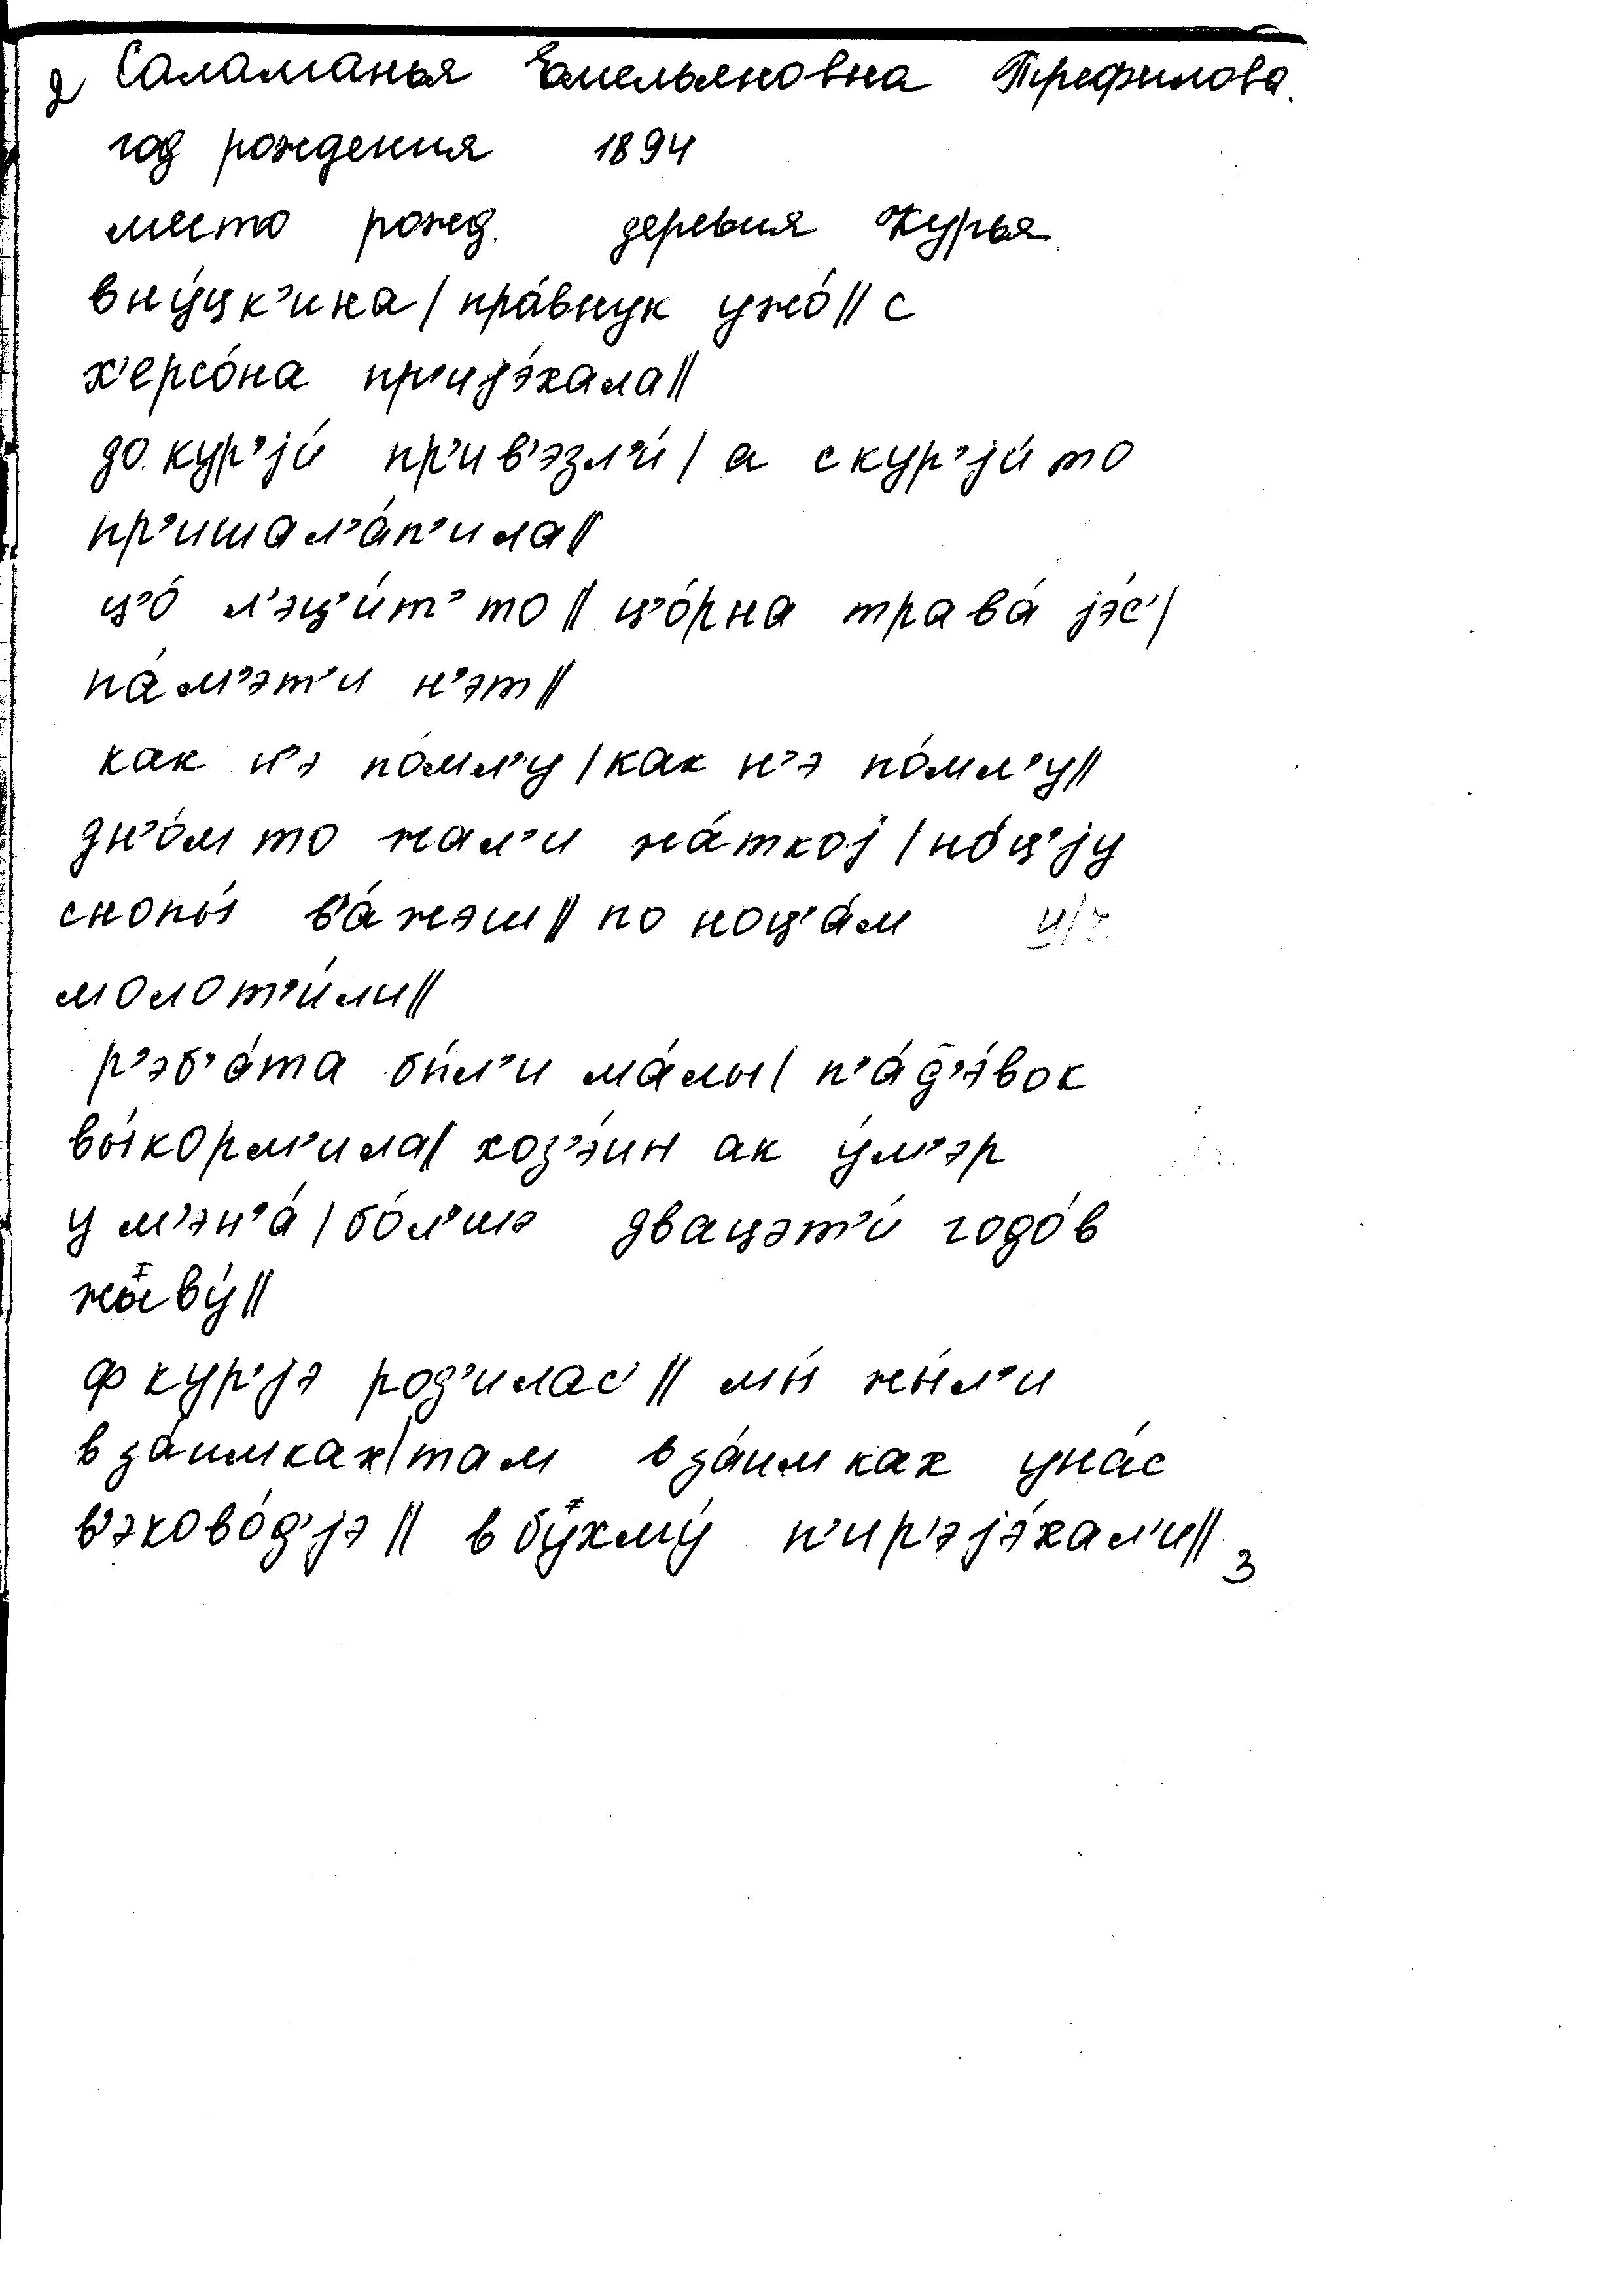 2 Саламанья Емельяновна Трефилова.
год рождения 1894
место рожд. деревня Курья.
вну́цк'ина / пра́внук ужо́ // с
х'ерсо́на пр'ијэ́хала //
до кур'ји́ пр'ив'эзл'и́ / а с кур'ји́ то
пр'ишал'а́п'ила //
ц'о́ л'эц'и́т' то // ц'о́рна трава́ јэ́с' /
па́м'эт'и н'эт //
как н'э по́мл'у / как н'э по́мл'у //
дн'о́м то жал'и жа́ткој / но́ц'ју
снопы́ в'а́жэш // по ноц'а́м
молот'и́ли //
р'эб'а́та бы́л'и ма́лы / п'а́д'э́вок
вы́корм'ила / хоз'э́ин ак у́м'эр
у м'эн'а́ / бо́л'шэ двацэт'и́ годо́в
жыву́ //
ф кур'јэ род'илас' // мы́ жы́л'и
в за́имках / там в за́имках у на́с
в'эково́д'јэ // в бухму́ п'ир'эјэ́хал'и //
3